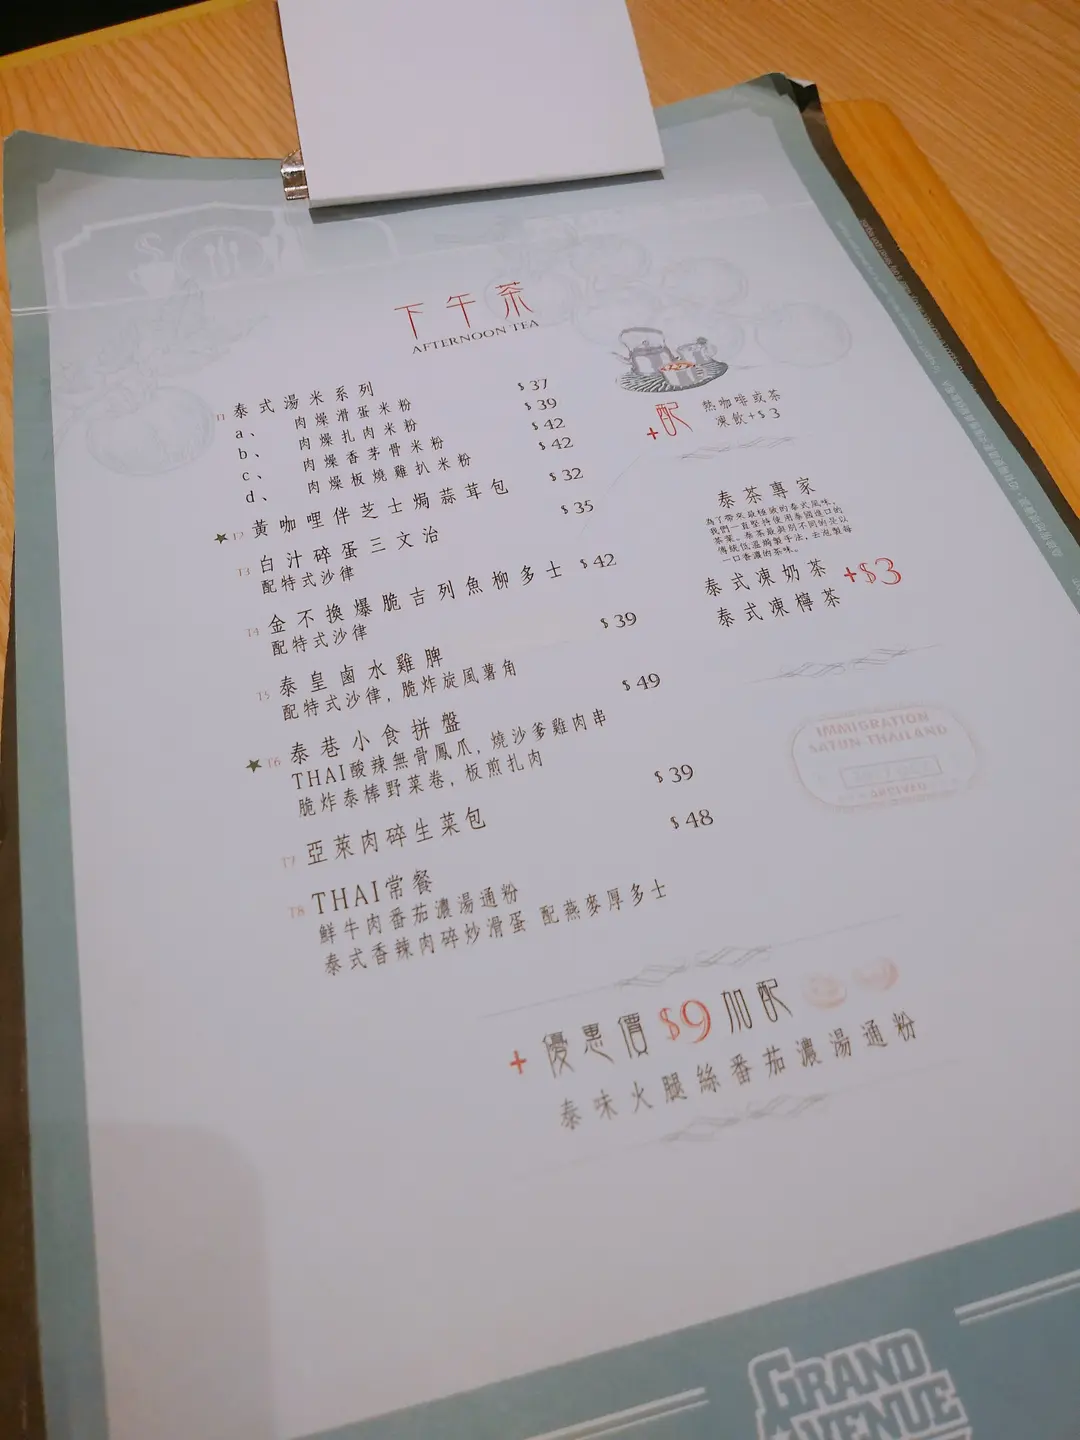 下午茶
AFTERNOON TEA
T1 泰式湯米系列
a、 肉燥滑蛋米粉 $37
b、 肉燥扎肉米粉 $39
c、 肉燥香茅骨米粉 $42
d、 肉燥板燒雞扒米粉 $42
T2 黃咖哩伴芝士焗蒜茸包 $32
T3 白汁碎蛋三文治 $35
配特式沙律
T4 金不換爆脆吉列魚柳多士 $42
配特式沙律
T5 泰皇鹵水雞脾 $39
配特式沙律, 脆炸旋風薯角
T6 泰巷小食拼盤 $49
THAI酸辣無骨鳳爪, 燒沙爹雞肉串
脆炸泰棒野菜卷, 板煎扎肉
T7 亞萊肉碎生菜包 $39
T8 THAI常餐 $48
鮮牛肉番茄濃湯通粉
泰式香辣肉碎炒滑蛋 配燕麥厚多士
+配 熱咖啡或茶
凍飲+$3
泰茶專家
為了帶來最極緻的泰式風味,
我們一直堅持使用泰國進口的
茶葉。泰茶最與別不同的是以
傳統低溫焗製手法, 去泡製每
一口香濃的茶味。
泰式凍奶茶 +$3
泰式凍檸茶
IMMIGRATION
SATUN THAILAND
ARRIVED
+ 優惠價 $9 加配
泰味火腿絲番茄濃湯通粉
GRAND
AVENUE